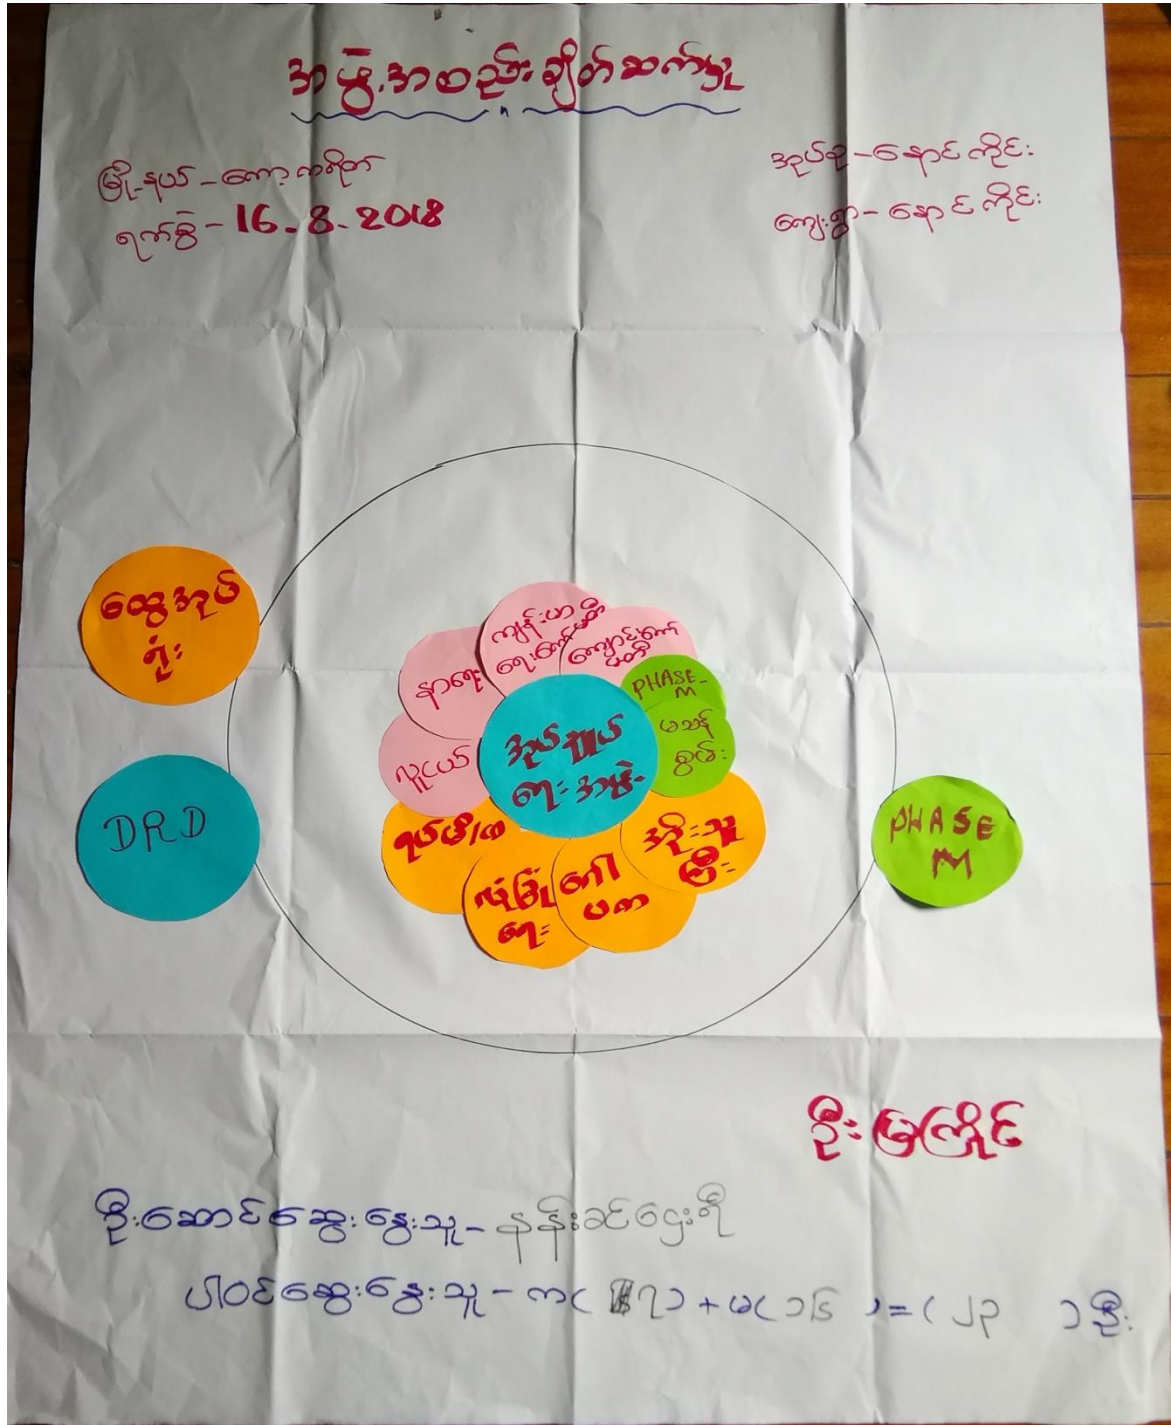 အဖွဲ့အစည်းချိတ်ဆက်မှု
မြို့နယ် - ကော့ကရိတ်
ရက်စွဲ - 16.8.2018
အုပ်စု - နောင်ကိုင်း
ကျေးရွာ - နောင်ကိုင်း
ထွေအုပ်
ရုံး
DRD
ကျန်းမာ
ရေးကော်မတီ
ကျောင်းကော်
မတီ
နာရေး
PHASE
M
မသန်
စွမ်း
လူငယ်
အုပ်ချုပ်
ရေးအဖွဲ့
ရပ်မိ/ဖ
လုံခြုံ
ရေး
ဂေါ
ပက
အိုးသူ
ကြီး
PHASE
M
ဦးမြကြိုင်
ဦးဆောင်ဆွေးနွေးသူ - နန်းခင်ဌေးရီ
ပါဝင်ဆွေးနွေးသူ - ကျ( ၇ ) + မ( ၁၆ ) = ( ၂၃ ) ဦး